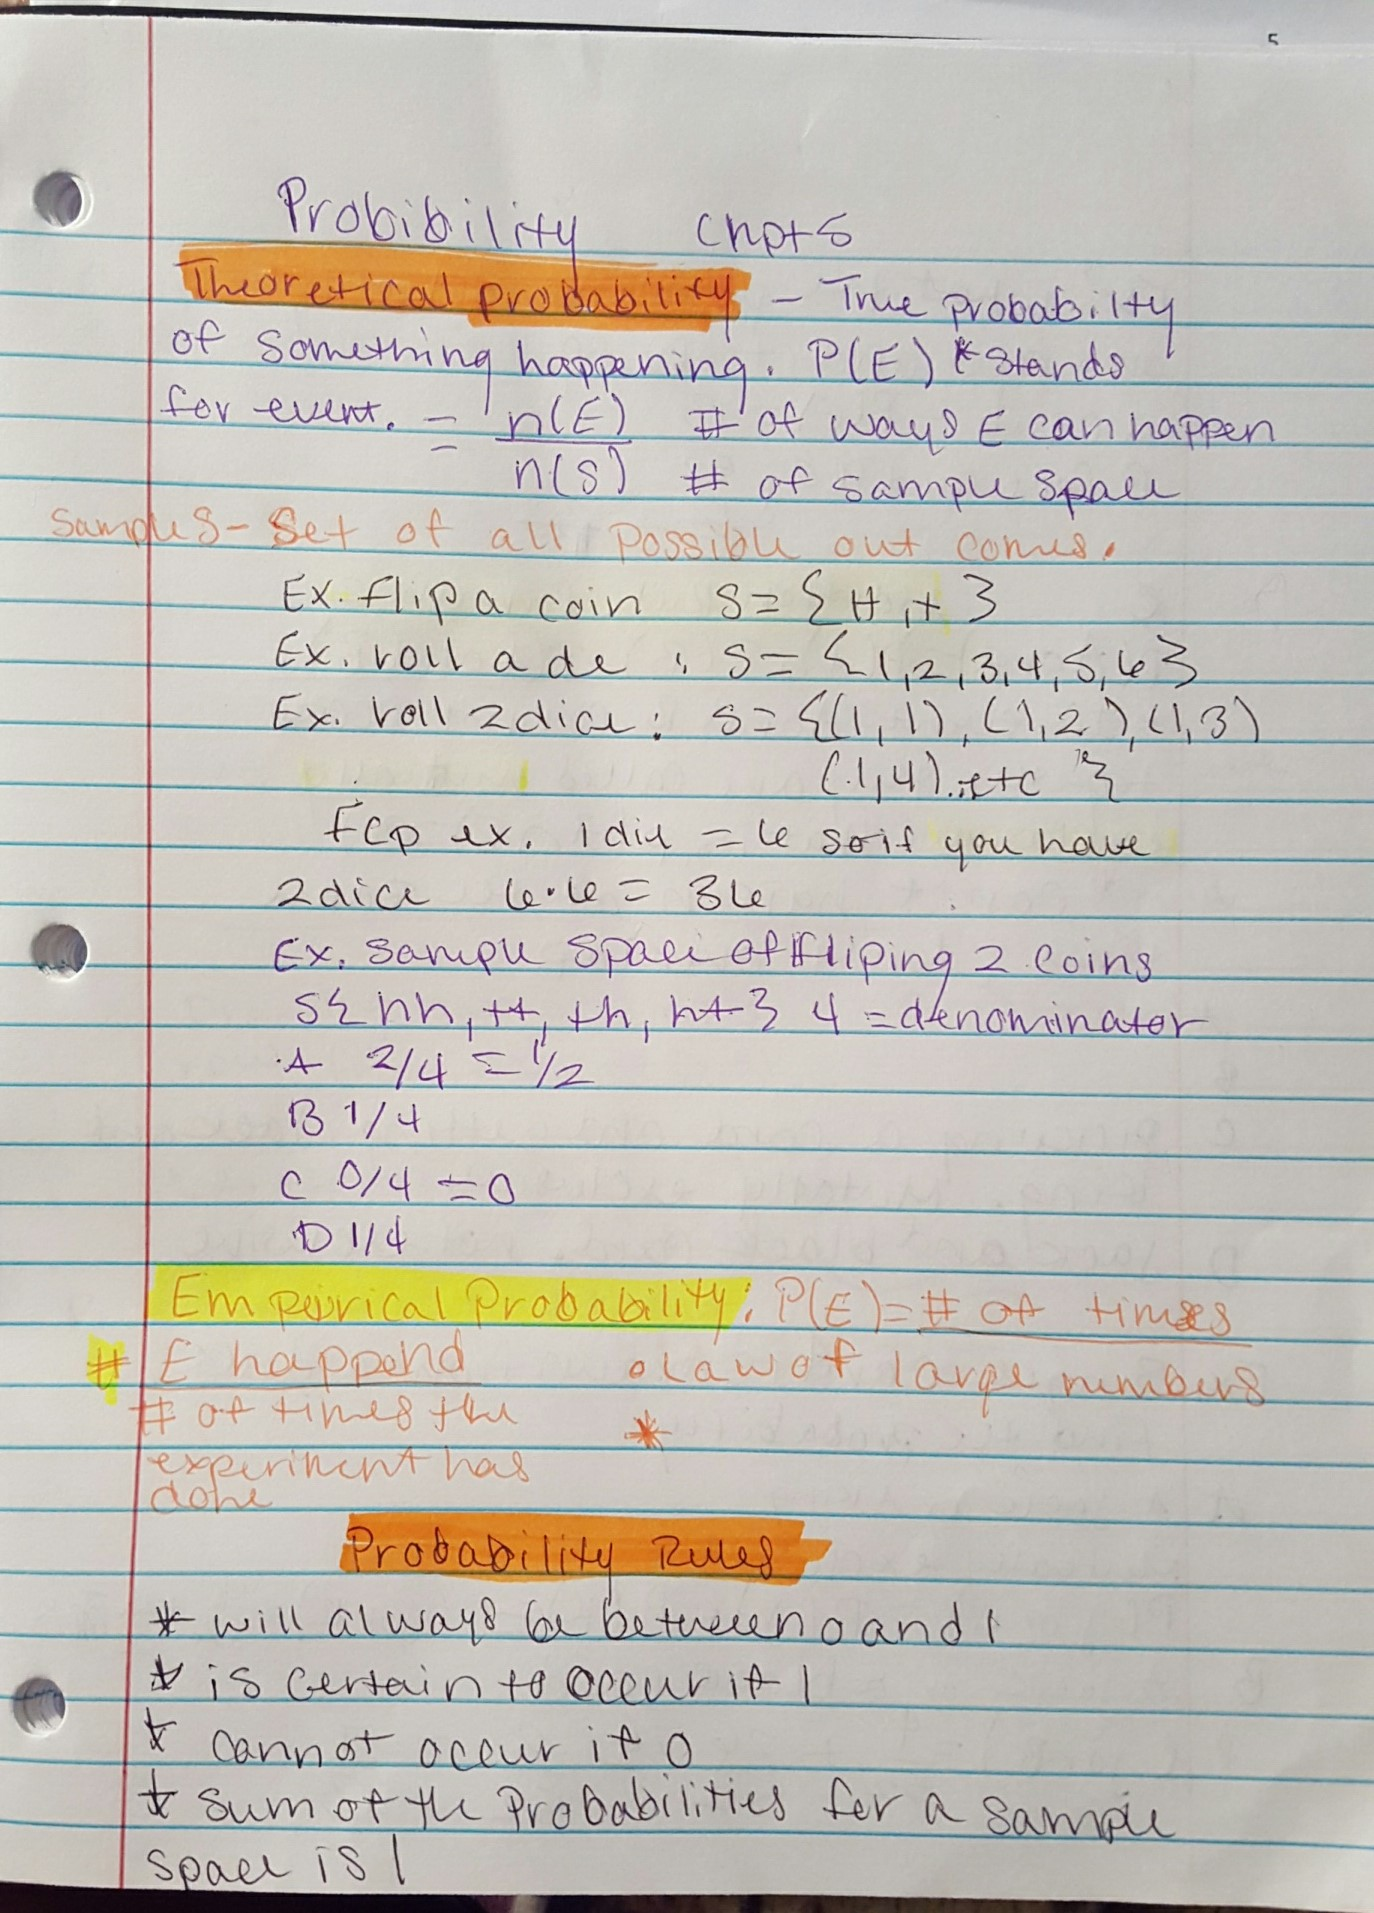 5
Probibility chpt 5
Theoretical probability - True probabilty
of something happening. P(E) * stands
for event. = n(E) # of ways E can happen
n(S) # of sample space
Sample S - Set of all possible out comes.
Ex. flip a coin S = {H, t}
Ex. roll a de : S = {1,2,3,4,5,6}
Ex. roll 2 dice : S = {(1,1), (1,2), (1,3)
(1,4)... etc }
Fcp ex. 1 die = 6 so if you have
2 dice 6·6 = 36
Ex. sample space of fliping 2 coins
S{ hh, tt, th, ht } 4 = denominator
A 2/4 = 1/2
B 1/4
C 0/4 = 0
D 1/4
Empeirical Probability: P(E) = # of times
# E happend • Law of large numbers
# of times the *
experiment has
done
Probability Rules
* will always be between 0 and 1
* is certain to occur if 1
* cannot occur if 0
* sum of the Probabilities for a sample
space is 1